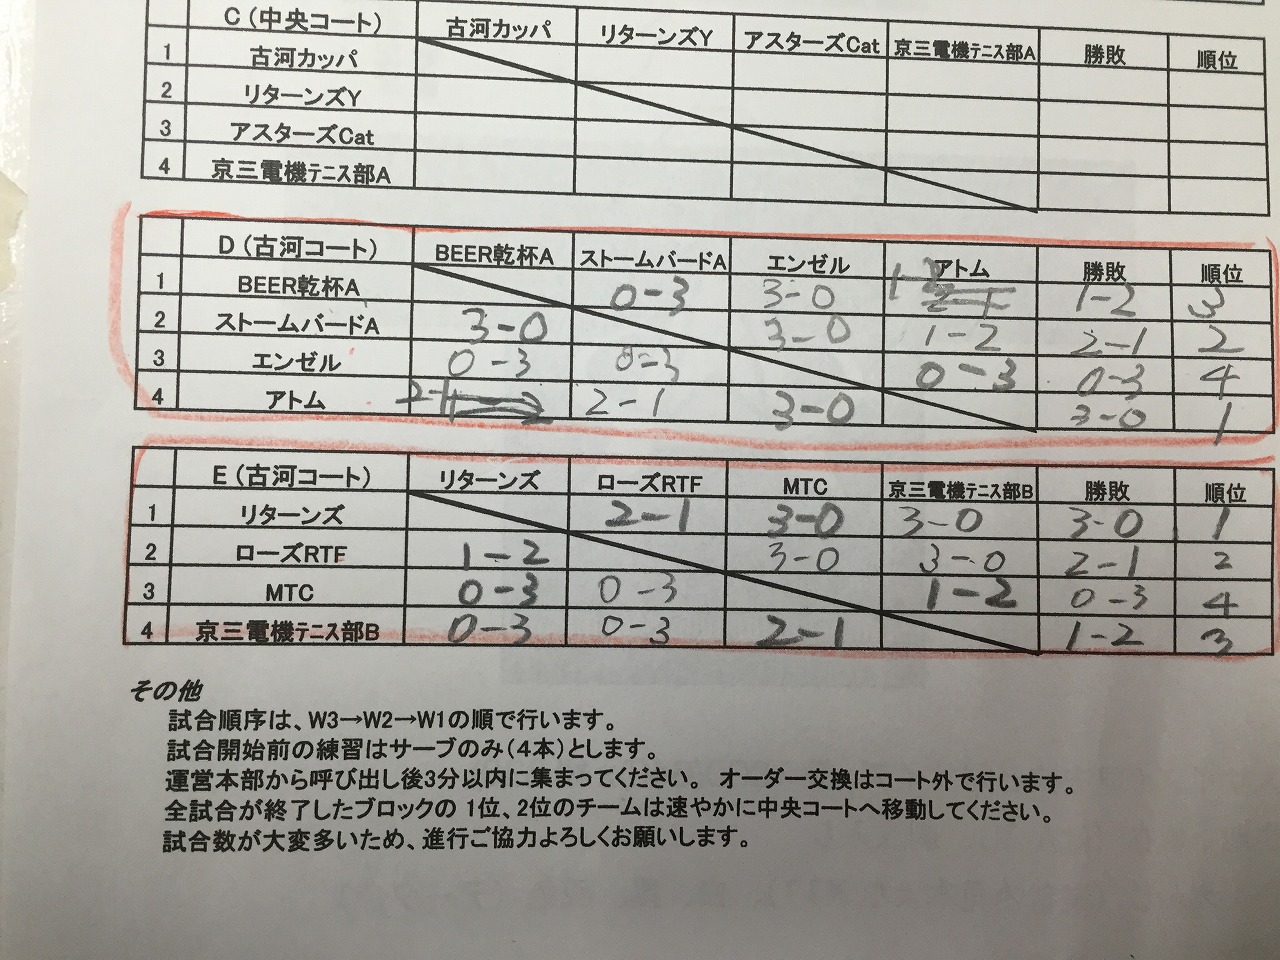 C（中央コート） 古河カッパ リターンズY アスターズCat 京三電機テニス部A 勝敗 順位
1 古河カッパ
2 リターンズY
3 アスターズCat
4 京三電機テニス部A
D（古河コート） BEER乾杯A ストームバードA エンゼル アトム 勝敗 順位
1 BEER乾杯A 0-3 3-0 1-2 1-2 3
2 ストームバードA 3-0 3-0 1-2 2-1 2
3 エンゼル 0-3 0-3 0-3 0-3 4
4 アトム 2-1 2-1 3-0 3-0 1
E（古河コート） リターンズ ローズRTF MTC 京三電機テニス部B 勝敗 順位
1 リターンズ 2-1 3-0 3-0 3-0 1
2 ローズRTF 1-2 3-0 3-0 2-1 2
3 MTC 0-3 0-3 1-2 0-3 4
4 京三電機テニス部B 0-3 0-3 2-1 1-2 3
その他
試合順序は、W3→W2→W1の順で行います。
試合開始前の練習はサーブのみ（4本）とします。
運営本部から呼び出し後3分以内に集まってください。 オーダー交換はコート外で行います。
全試合が終了したブロックの 1位、2位のチームは速やかに中央コートへ移動してください。
試合数が大変多いため、進行ご協力よろしくお願いします。